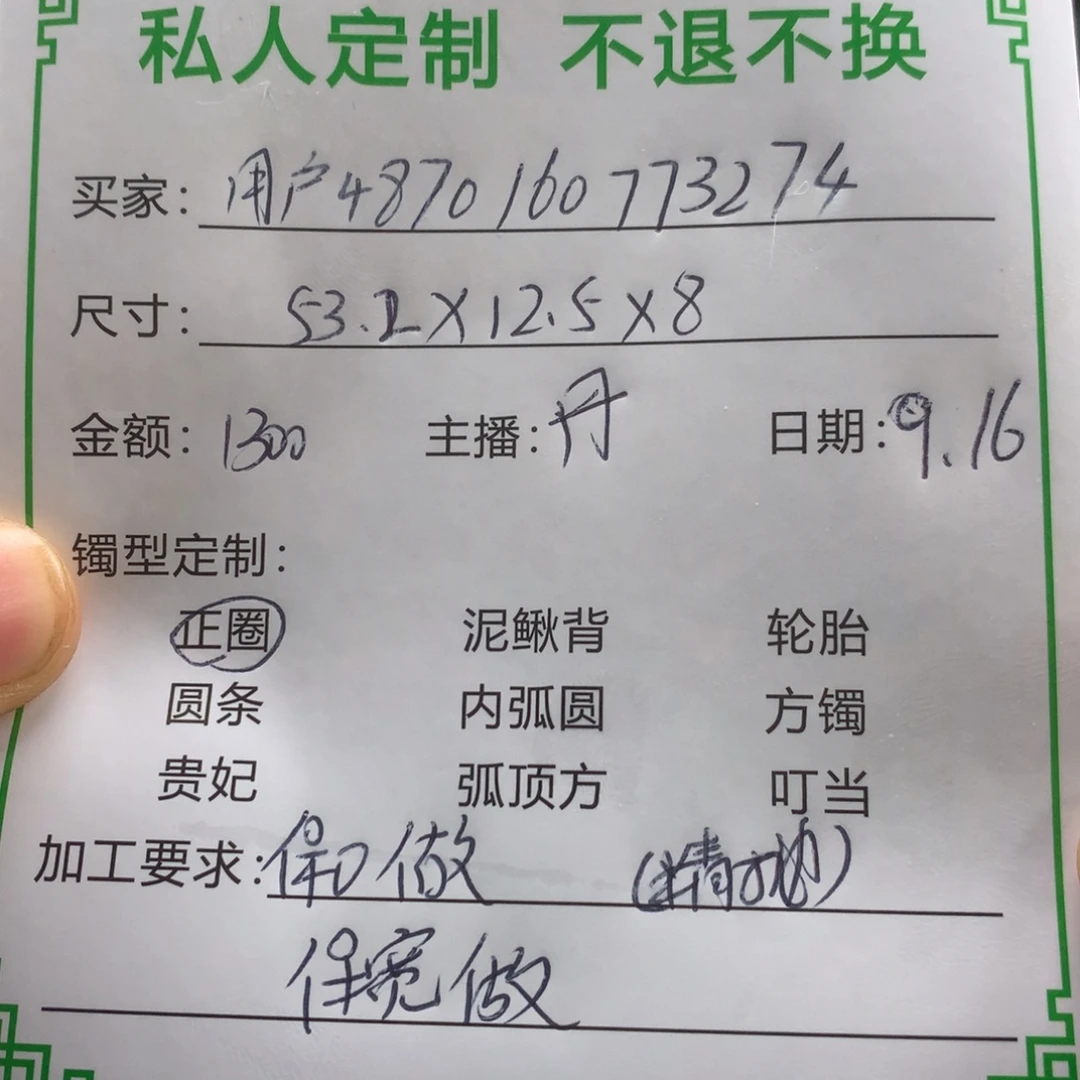 私人定制 不退不换
买家: 用户4870160773274
尺寸: 53.2X12.5X8
金额: 1300 主播: 丹 日期: 9.16
镯型定制:
正圈 泥鳅背 轮胎
圆条 内弧圆 方镯
贵妃 弧顶方 叮当
加工要求: 保口做 (精抛)
保宽做